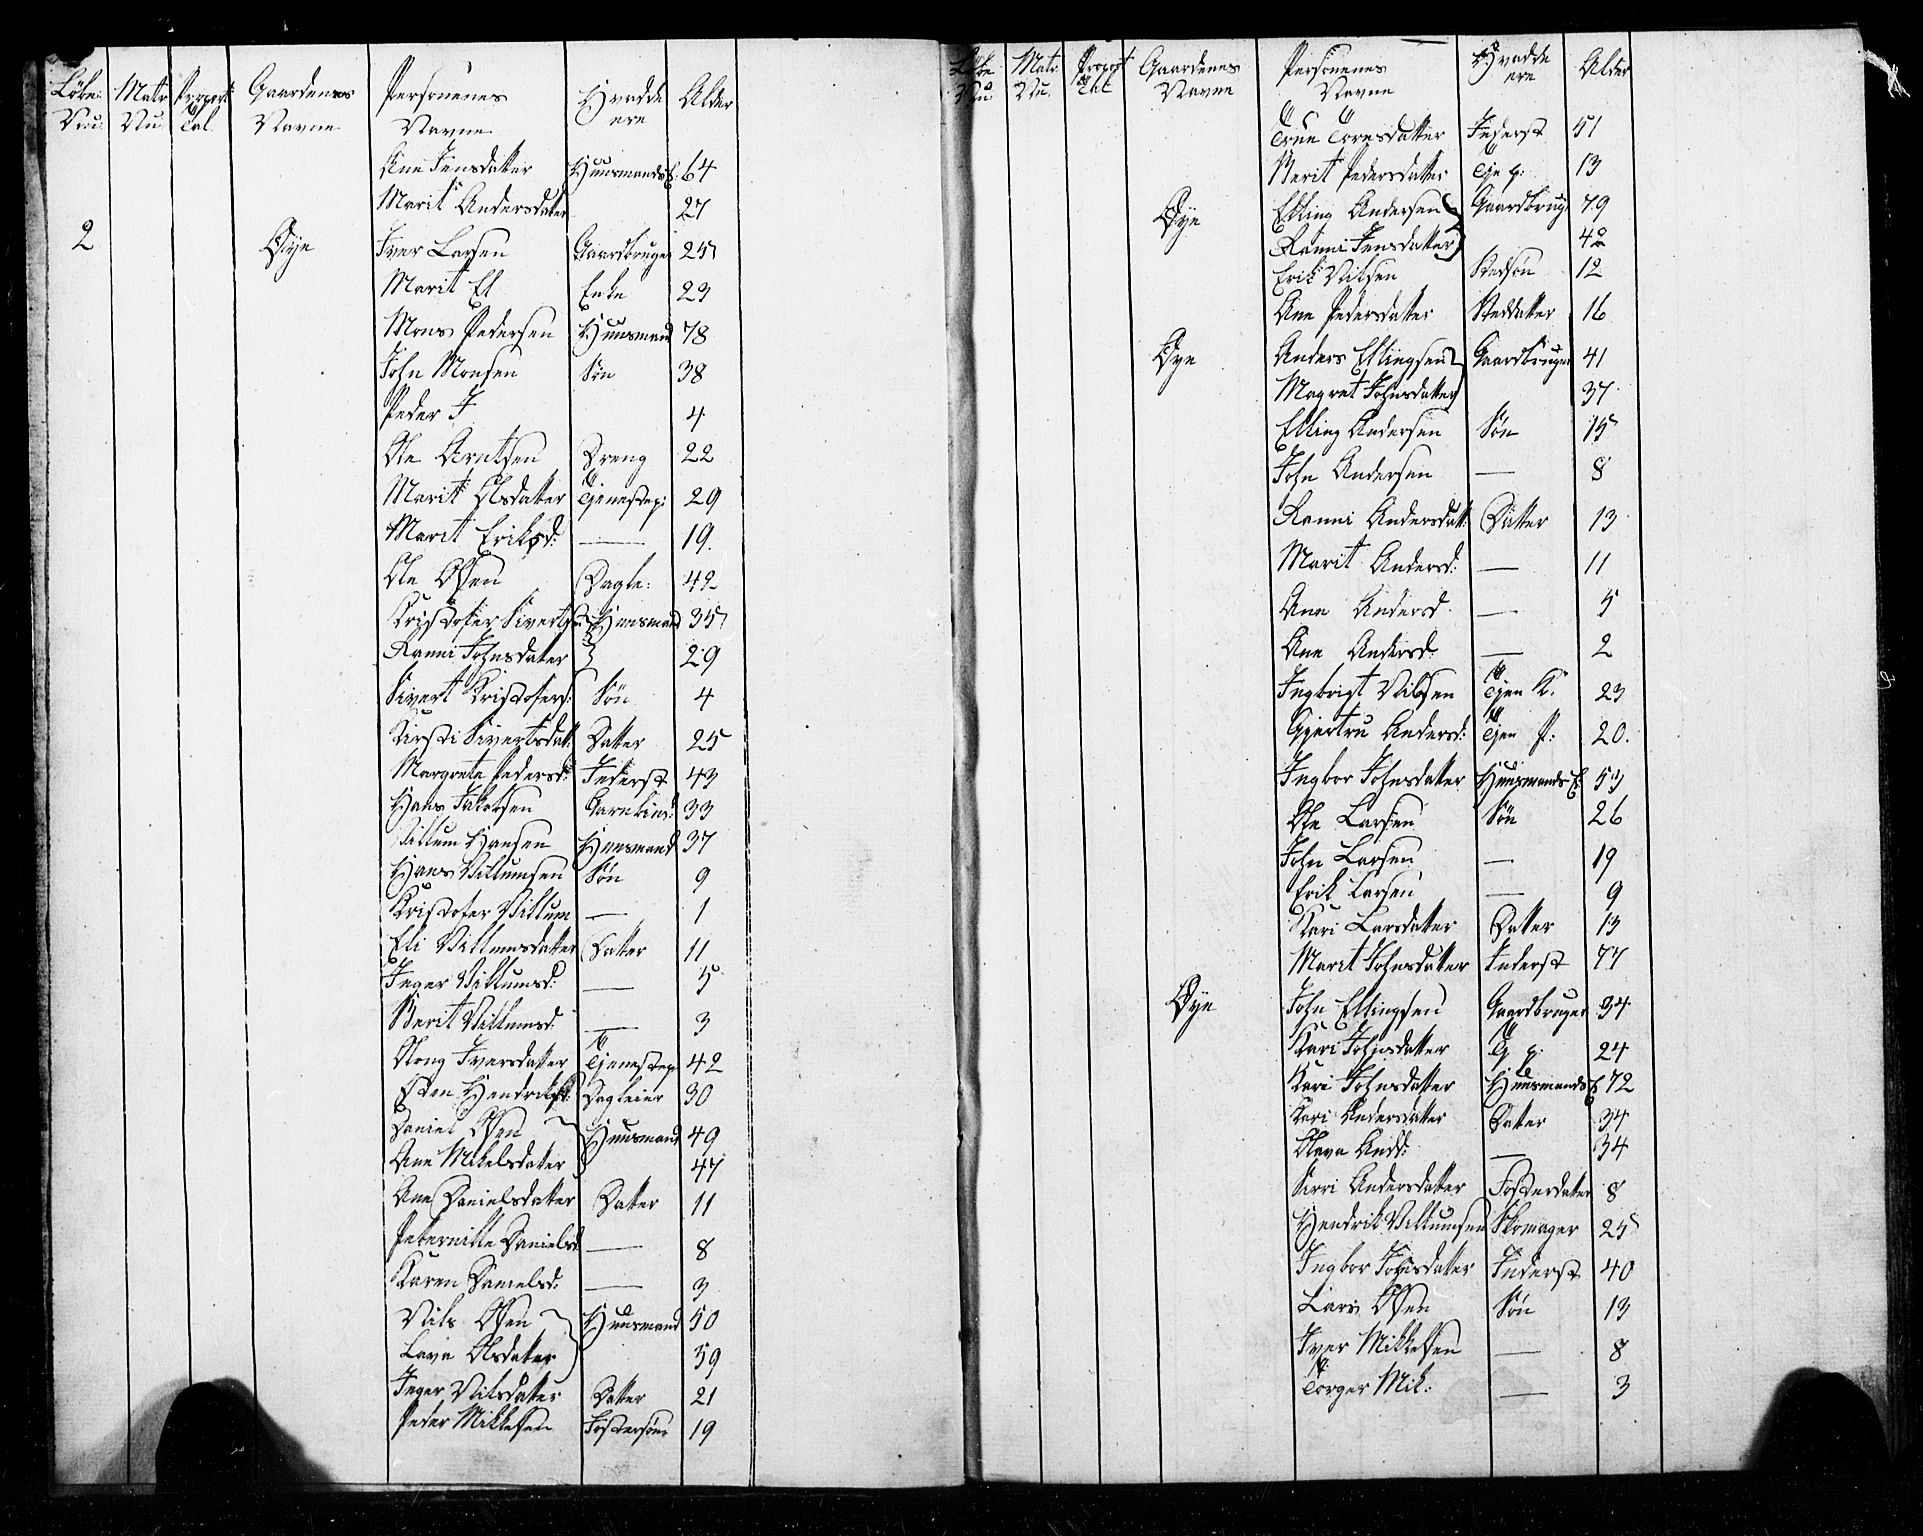 Löbe Matr Proport Gaardenes Personenes Hvadde Alder
Nu: Nu. Tal. Navne Navne ere
Ane Jensdatter Huusmands E. 64
Marit Andersdatter 27
2 Øye Iver Larsen Gaardbruger 25
Marit El Enke 23
Mons Pedersen Huusmand 78
John Monsen Søn 38
Peder J 4
Ole Arntsen Dreng 22
Marit Olsdatter Tjenestep: 29
Marit Eriksd: — 19.
Ole Olsen Dagle: 42
Kristofer Sivertsen Huusmand 35
Ranni Johnsdatter 29
Sivert Kristofers: Søn 4
Kirsti Sivertsdatt: Datter 25
Margrete Pedersd: Inderst 43
Hans Jakobsen 33
Villum Hansen Huusmand 37
Hans Villumsen Søn 9
Kristofer Villum — 1
Eli Villumsdatter Datter 11
Inger Villumsd: — 5
Berit Villumsd — 3
Olong Iversdatter Tjenestep 42
Esten Hendriks: Dagleier 30
Daniel Olsen Huusmand 49
Ane Mikelsdatter 47
Ane Danielsdatter Datter 11
Peternille Danielsd — 8
Karen Danielsd: — 3
Nils Olsen Huusmand 50
Lava Olsdatter 59
Inger Nilsdatter Datter 21
Peder Mikkelsen Fostersøn 19
Löbe Matr Proport Gaardenes Personenes Hvadde Alder
Nu: Nu. Tal Navne Navne ere
True Toresdatter Inderst 51
Berit Pedersdatter Tje p: 13
Øye Elling Andersen Gaardbrug 79
Ranni Jensdatter 42
Erik Nilsen Stedsøn 12
Ane Pedersdatter Steddatter 16
Øye Anders Ellingsen Gaardbruger 41
Magret Johnsdatter 37
Elling Andersen Søn 15
John Andersen — 8
Ranni Andersdatt: Datter 13
Marit Andersd: — 11
Ane Andersd — 5
Ane Andersd: — 2
Ingbrigt Nilsen Tjen K. 23
Gjertru Andersd: Tjen P: 20.
Ingbor Johnsdatter Huusmands E 53
Ole Larsen Søn 26
John Larsen — 19
Erik Larsen — 9
Kari Larsdatter Datter 13
Marit Johnsdatter Inderst 77
Øye John Ellingsen Gaardbruger 34
Kari Johnsdatter Tj p: 24
Kari Johnsdatter Huusmands E 72
Kari Andersdatter Datter 34
Olava Andd: — 34
Sirri Andersdatter Fosterdatter 8
Hendrik Villumsen Skomager 25
Ingbor Johnsdatter Inderst 40
Lars Olsen Søn 13
Iver Mikkelsen — 8
Torger Mik: — 3